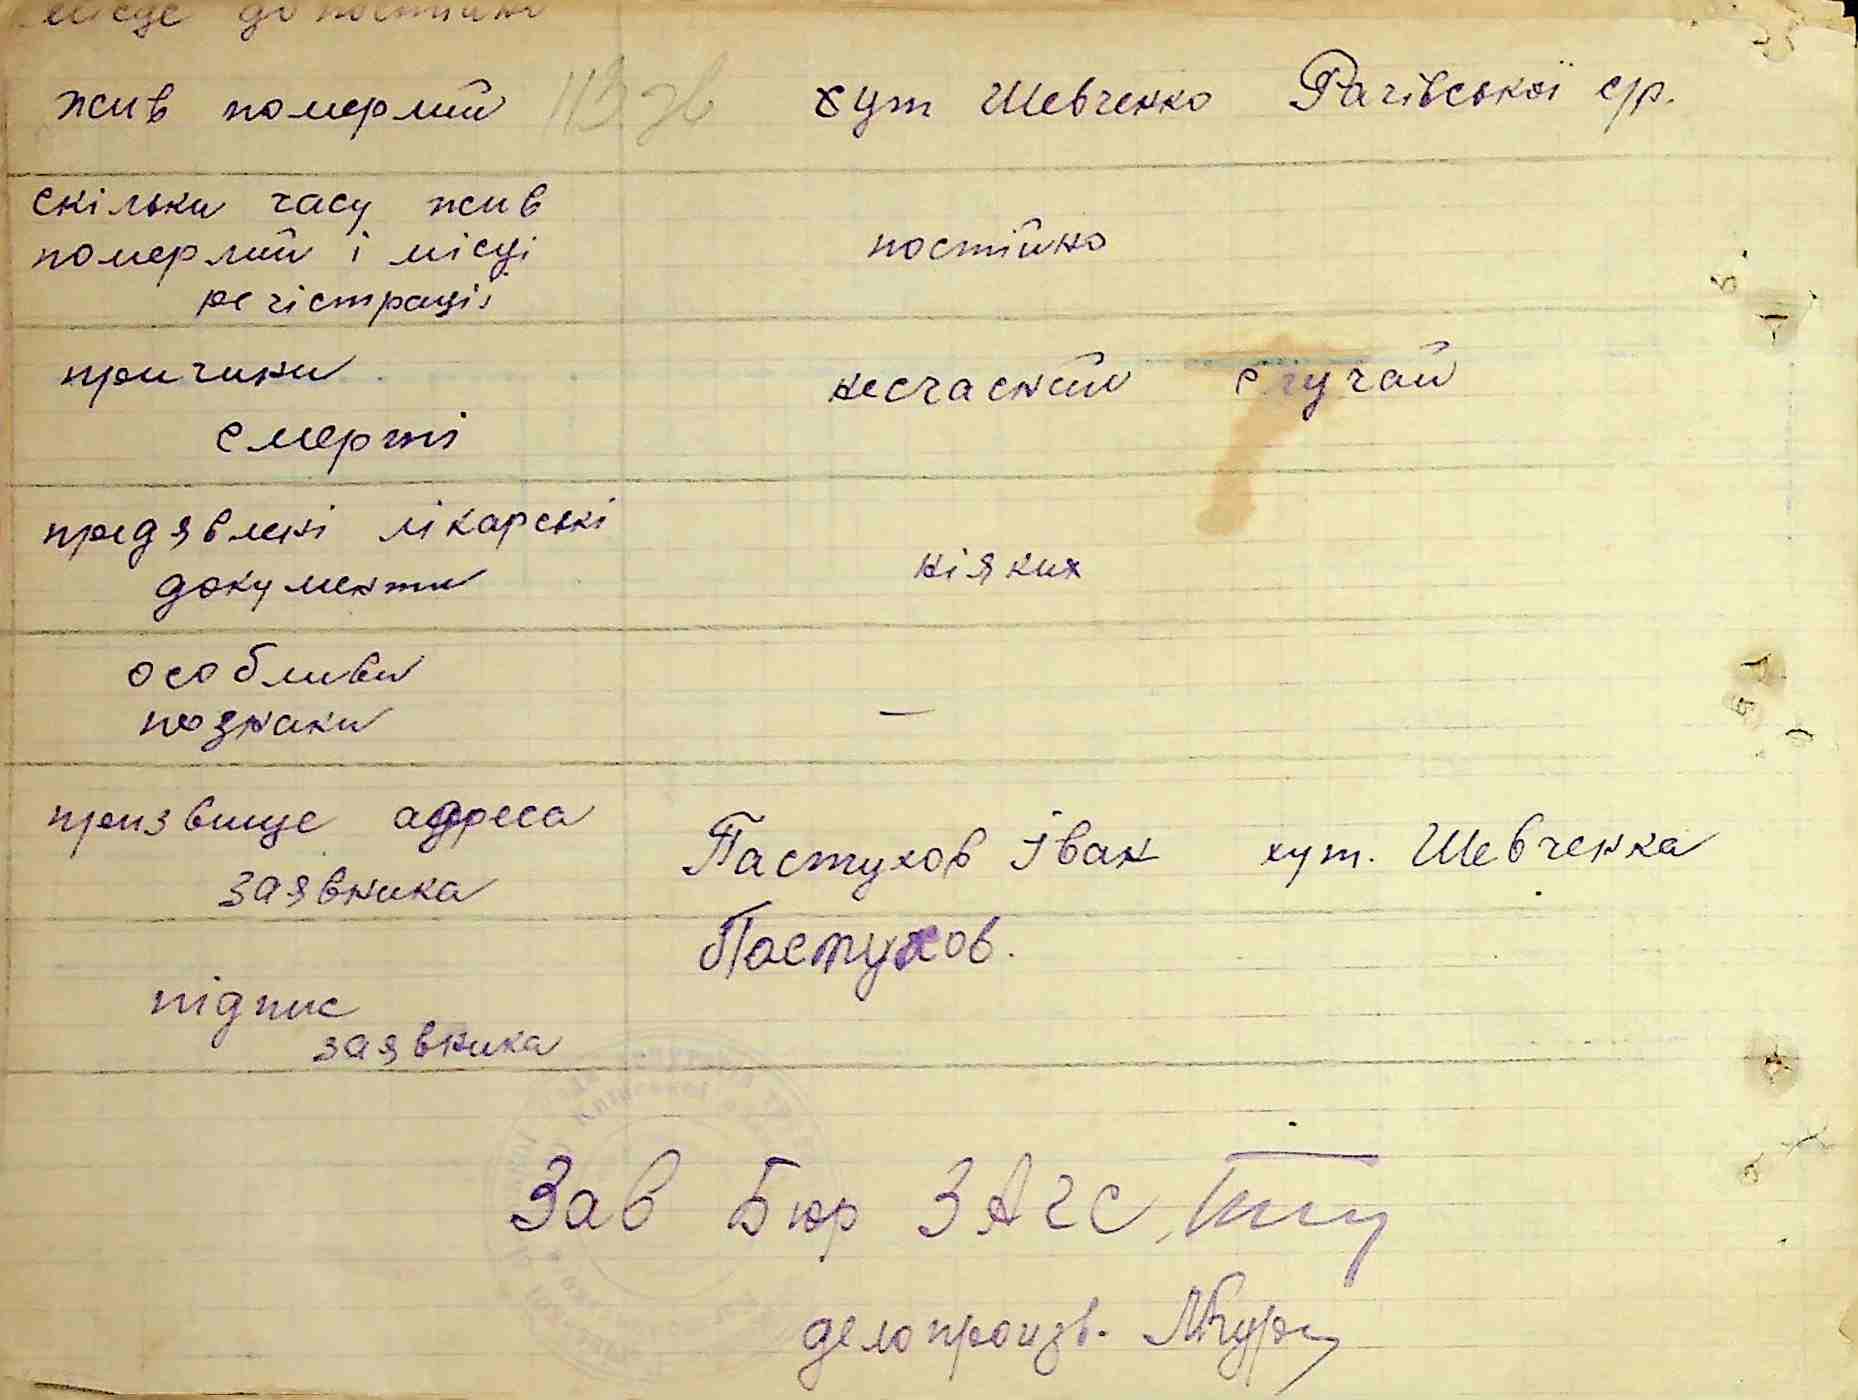 місце де постійно
жив померлий хут Шевченко Рачівської с/р.
скільки часу жив
померлий і місці постійно
регістрації
причини несчасний случай
смерті
предявлені лікарські
документи ніяких
особливи
познаки —
призвище адреса
Пастухов Іван хут. Шевченка
заявника
Пастухов.
підпис
заявника
Зав Бюр ЗАГС
делопроизв.